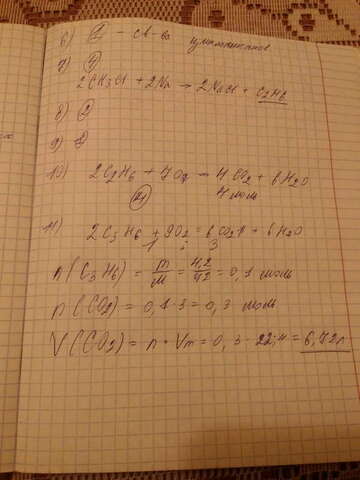 6) 2 - св-ва циклоалканов
7) 4
2CH3Cl + 2Na → 2NaCl + C2H6
8) 2
9) 2
10) 2C2H6 + 7O2 → 4CO2 + 6H2O
4 моль
11) 2C3H6 + 9O2 = 6CO2 + 6H2O
1 : 3
n(C3H6) = m/M = 4,2/42 = 0,1 моль
n(CO2) = 0,1·3 = 0,3 моль
V(CO2) = n · Vm = 0,3 · 22,4 = 6,72л